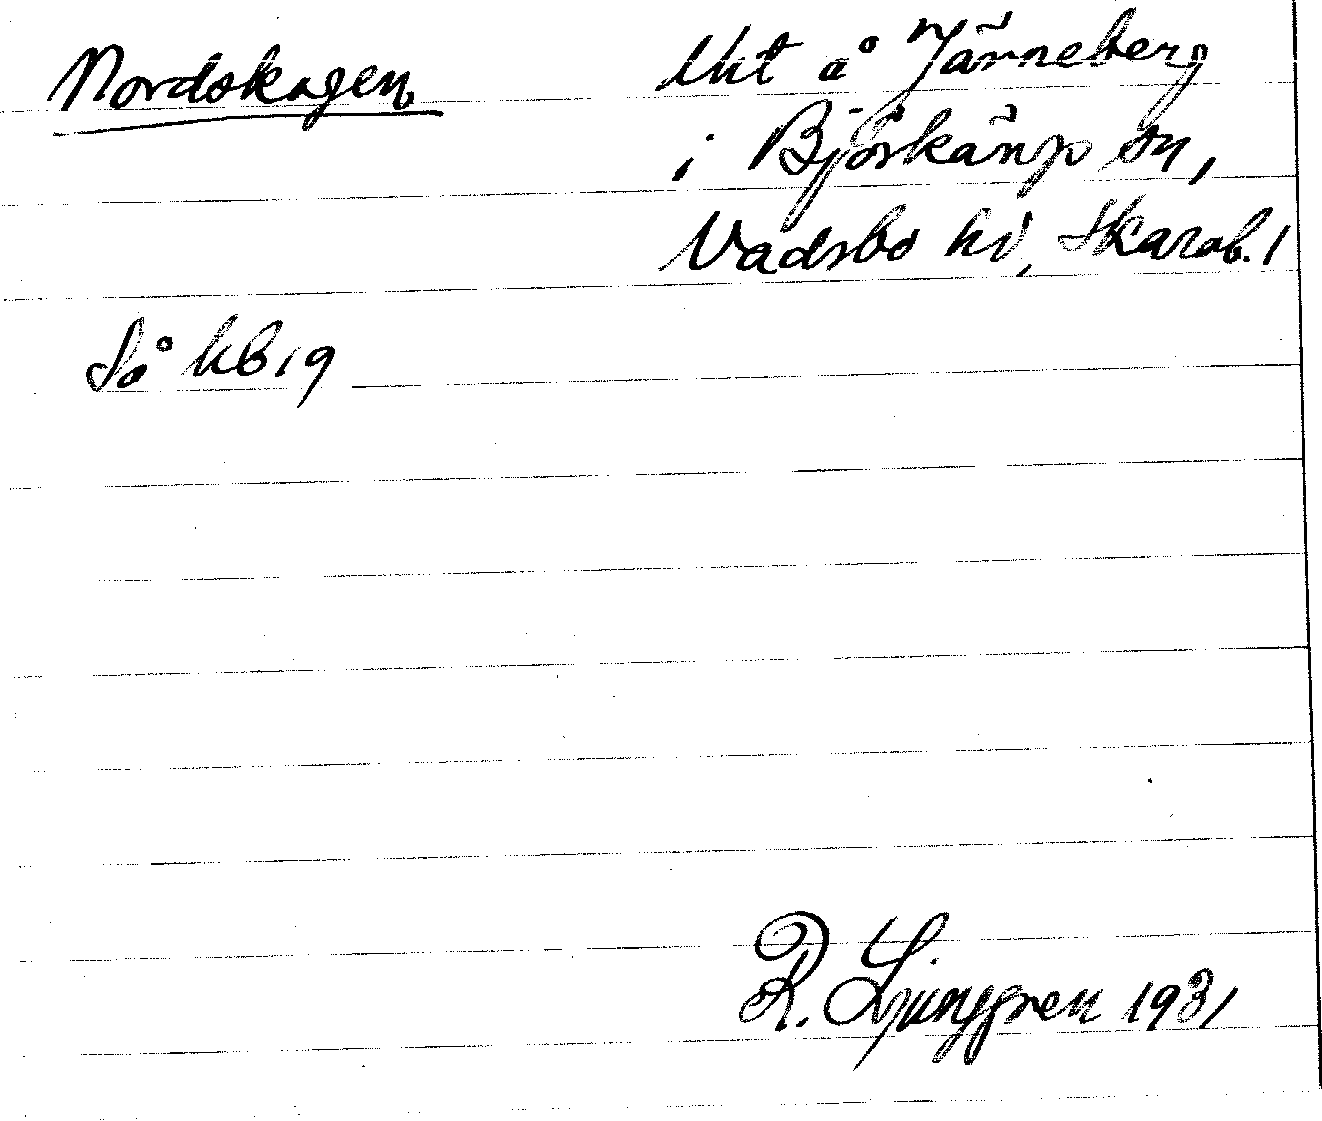 Nordskagen
Uht å Järneberg
i Björkäng sn,
Vadsbo hd, Skarab. l
Så kb 19
R. Ljunggren 1931